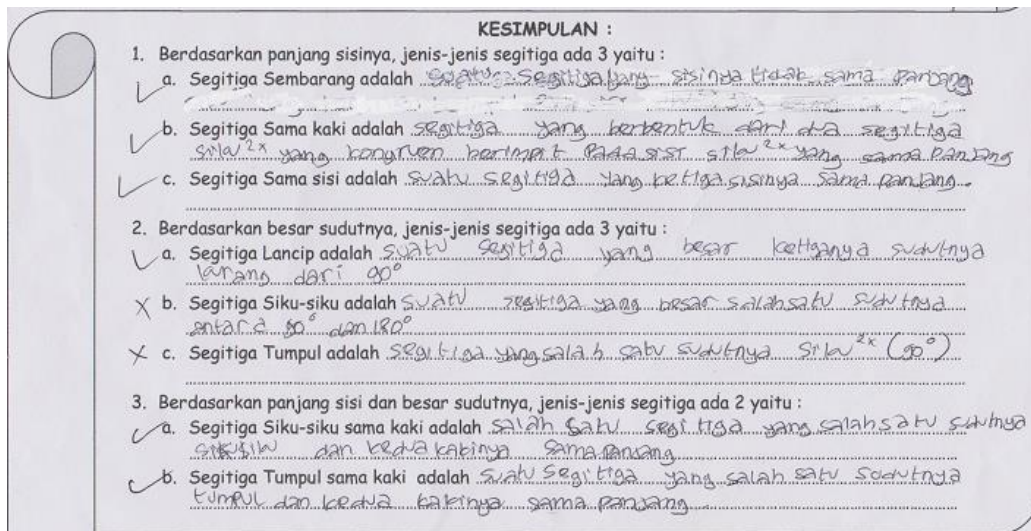 KESIMPULAN :
1. Berdasarkan panjang sisinya, jenis-jenis segitiga ada 3 yaitu :
a. Segitiga Sembarang adalah suatu segitiga yang sisinya tidak sama panjang
b. Segitiga Sama kaki adalah segitiga yang berbentuk dari dua segitiga
siku2x yang kongruen berimpit pada sisi siku2x yang sama panjang
c. Segitiga Sama sisi adalah suatu segitiga yang ketiga sisinya sama panjang.
2. Berdasarkan besar sudutnya, jenis-jenis segitiga ada 3 yaitu :
a. Segitiga Lancip adalah suatu segitiga yang besar ketiganya sudutnya
kurang dari 90°
b. Segitiga Siku-siku adalah suatu segitiga yang besar salah satu sudutnya
antara 90° dan 180°
c. Segitiga Tumpul adalah segitiga yang salah satu sudutnya siku2x (90°)
3. Berdasarkan panjang sisi dan besar sudutnya, jenis-jenis segitiga ada 2 yaitu :
a. Segitiga Siku-siku sama kaki adalah salah satu segitiga yang salah satu sudutnya
dan kedua kakinya sama panjang
b. Segitiga Tumpul sama kaki adalah suatu segitiga yang salah satu sudutnya
tumpul dan kedua kakinya sama panjang